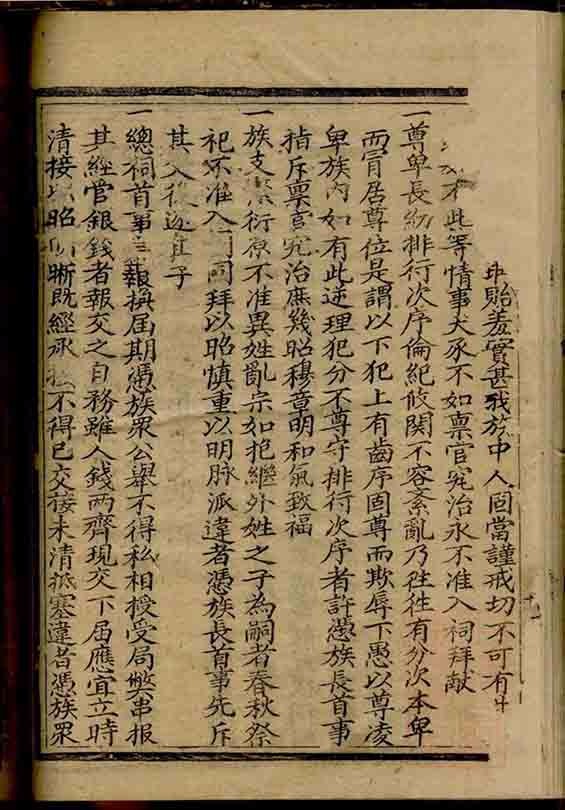 貽羞實甚我族中人固當謹戒切不可有
此等情事犬豕不如稟官究治永不准入祠拜献
一尊卑長幼排行次序倫紀攸関不容紊亂乃徃徃有分次本卑
而冐居尊位是謂以下犯上有齒序固尊而欺辱下愚以尊凌
卑族內如有此逆理犯分不尊守排行次序者許憑族長首事
指斥稟官究治庶幾昭穆章明和氣致福
一族支衍原不准異姓亂宗如抱繼外姓之子為嗣者春秋祭
祀不准入同拜以昭慎重以明脉派違者憑族長首事先斥
其父後逐其子
一總祠首事報換届期憑族眾公舉不得私相授受局弊串报
其經管銀錢者報交之自務雖人錢两齊現交下届應宜立時
清接以昭晰既經承不得已交接未清抵塞違者憑族眾